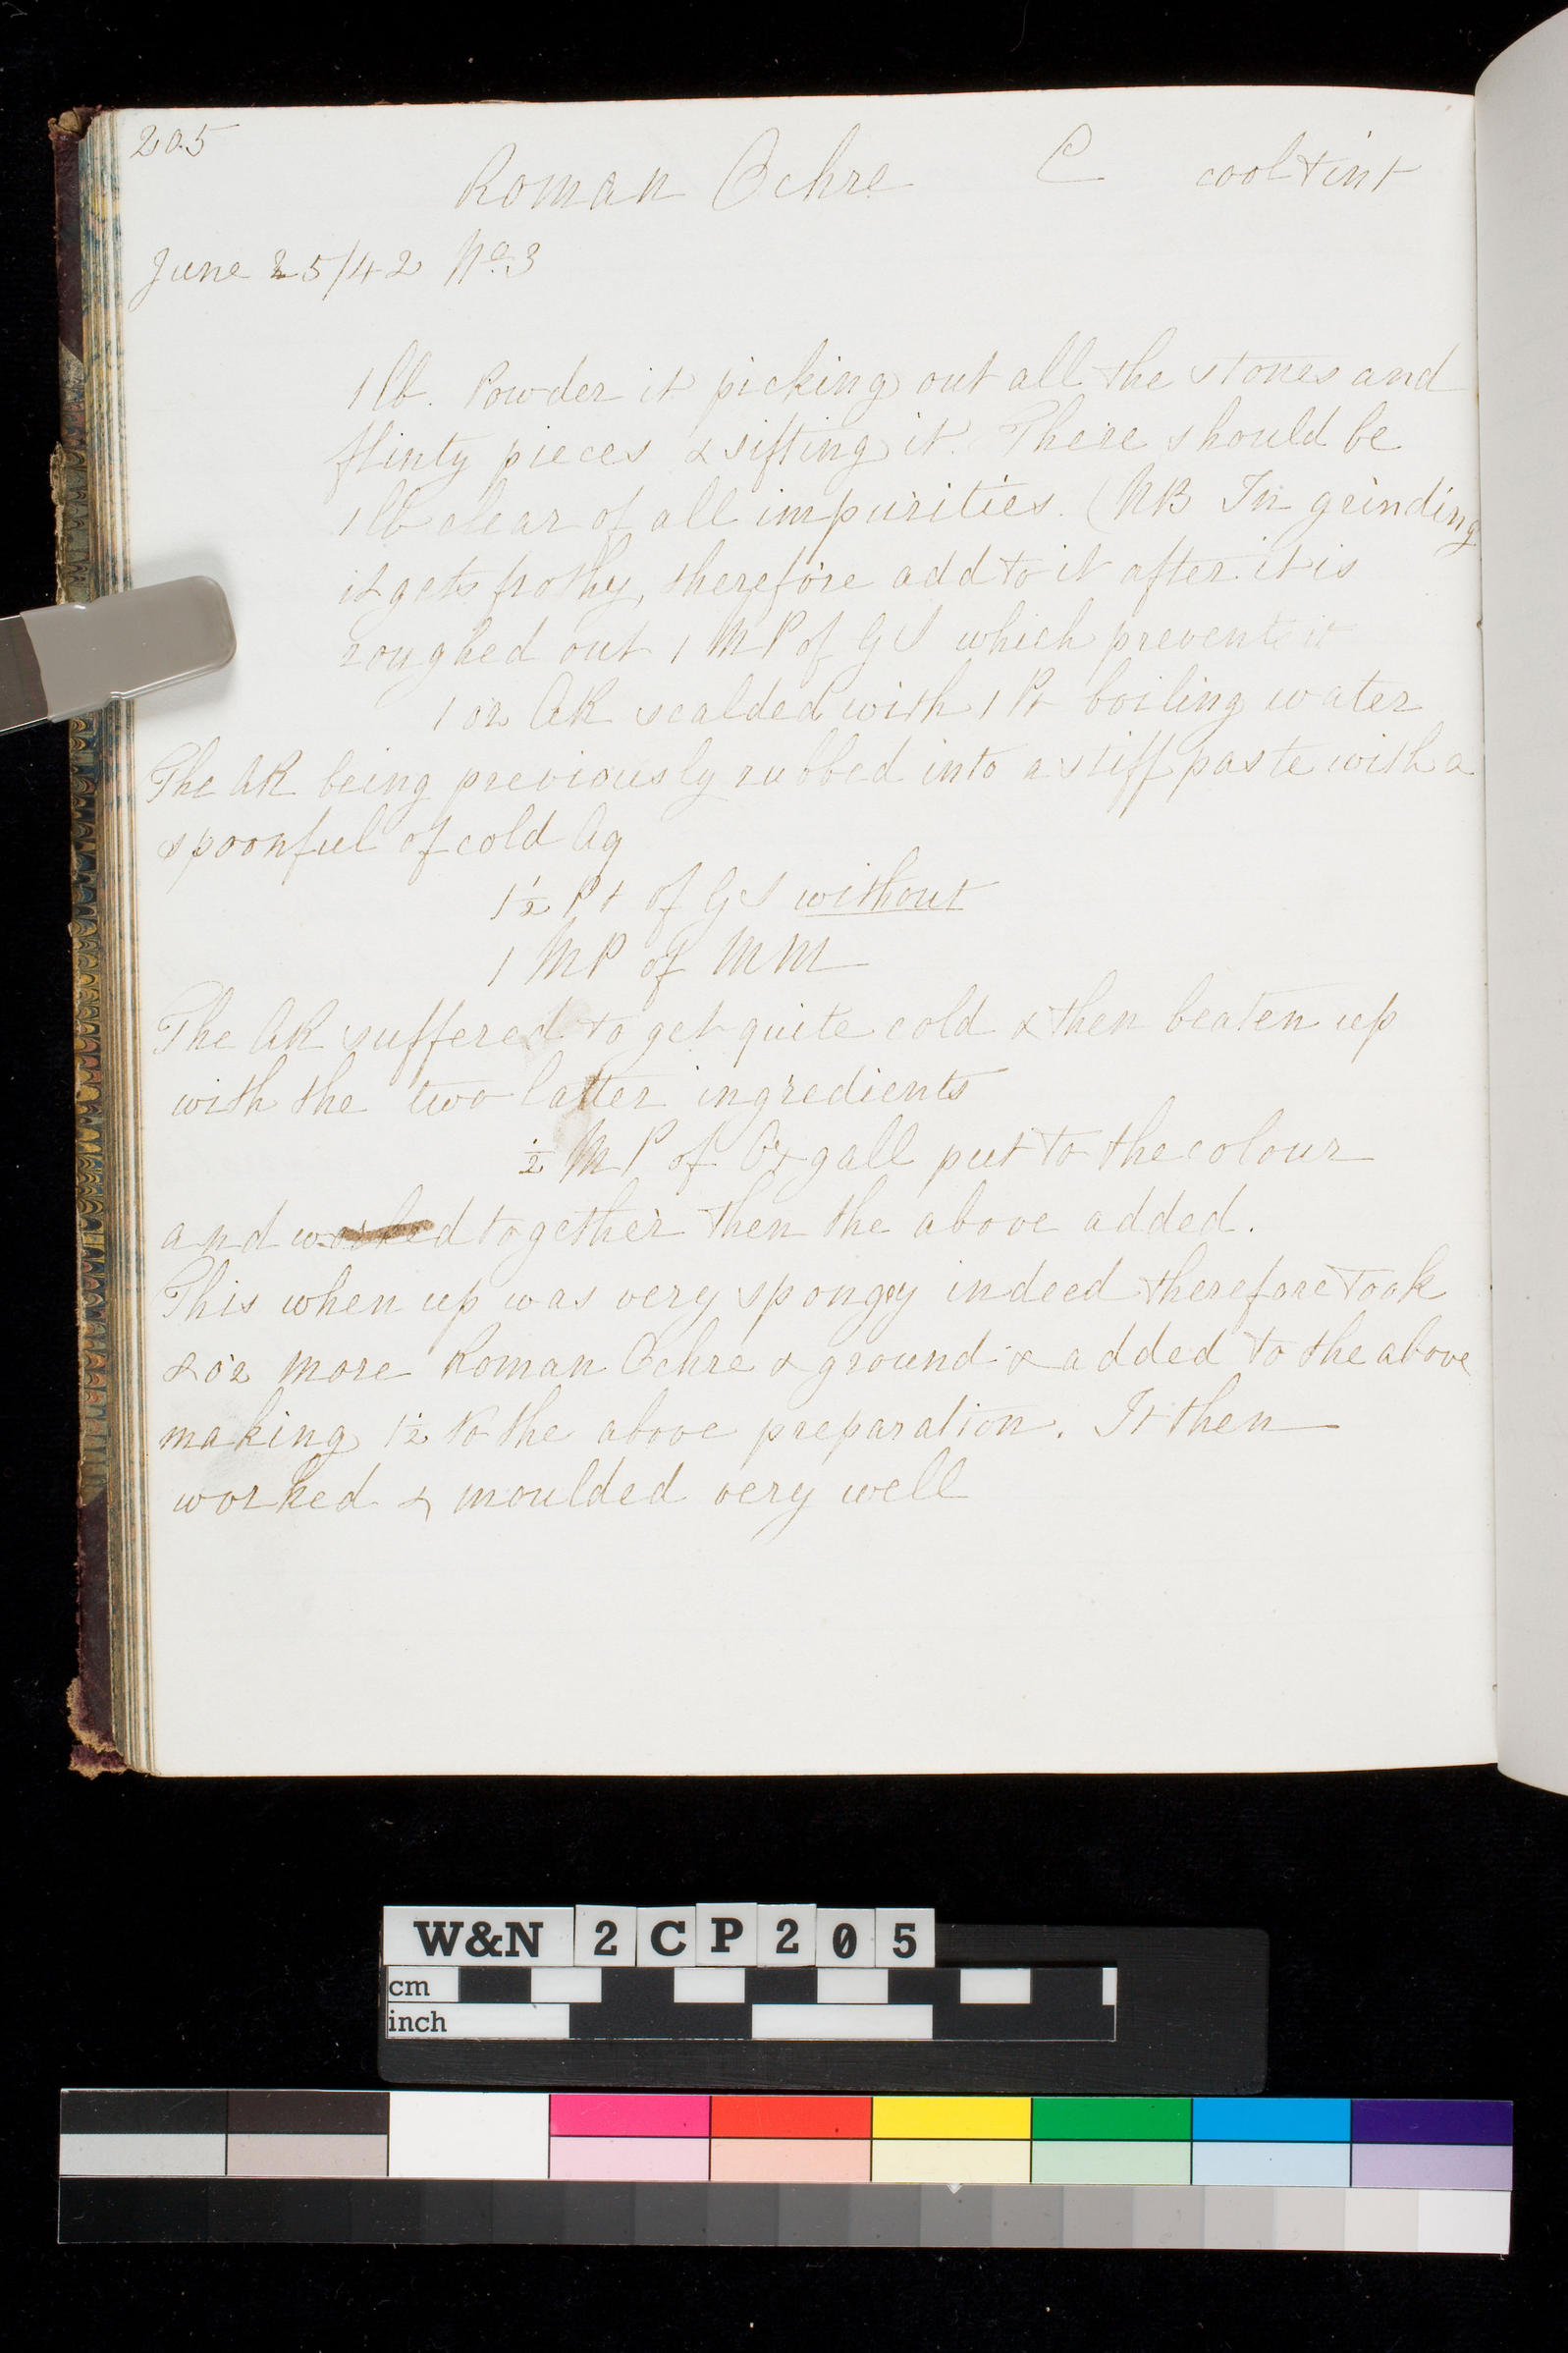 205
Roman Ochre C cool tint
June 25/42 No. 3
1 lb. Powder it picking out all the stones and
flinty pieces & sifting it. There should be
1 lb clear of all impurities. (NB In grinding
it gets frothy, therefore add to it after it is
roughed out 1 MP of GS which prevents it
1 oz AR scalded with 1 Pt boiling water
The AR being previously rubbed into a stiff paste with a
spoonful of cold Aq
1½ Pt of GS without
1 MP of MM
The AR suffered to get quite cold & then beaten up
with the two latter ingredients
½ MP of Oxgall put to the colour
and worked together then the above added.
This when up was very spongy indeed therefore took
oz more Roman Ochre & ground & added to the above
making 1½ to the above preparation. It then
worked & moulded very well
W&N 2CP205
cm
inch